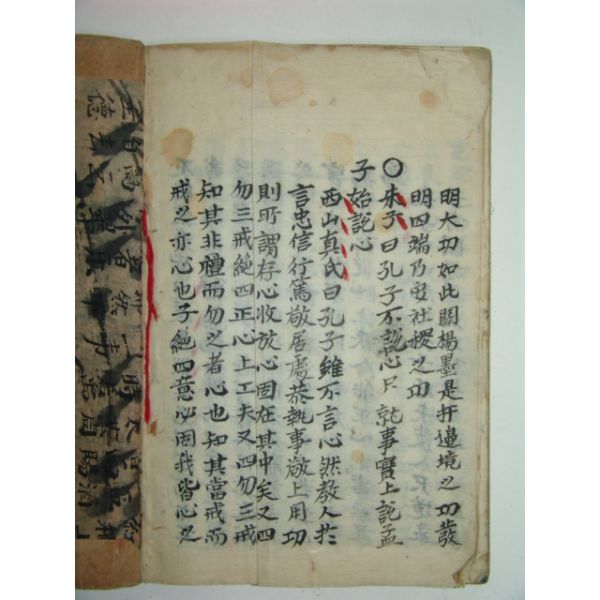 明大功如此闢楊墨是扞邊境之功發
明四端乃安社稷之功
〇朱子曰孔子不說心只就事實上說孟
子始說心
西山真氏曰孔子雖不言心然教人於
言忠信行篤敬居處恭執事敬上用功
則所謂存心收放心固在其中矣又四
勿三戒絕四正心上工夫又四勿三戒
知其非禮而勿之者心也知其當戒而
戒之亦心也子絕四意必固我皆心之